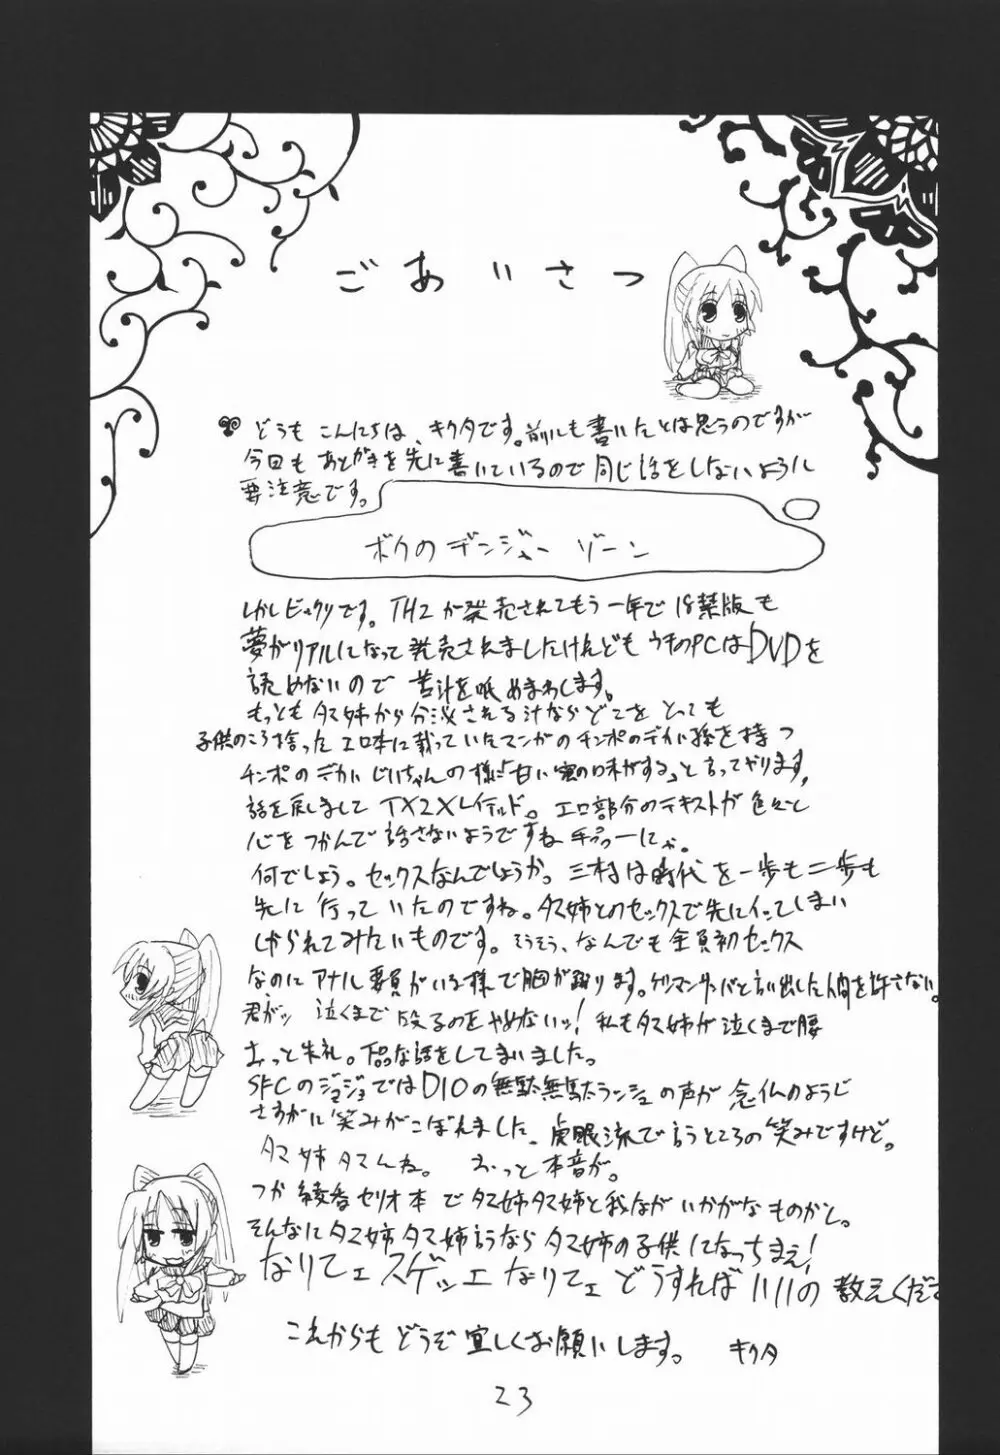 ごあいさつ
どうも こんにちは、キクタです。前にも書いたとは思うのですが
今回も あとがきを先に書いているので 同じ話をしないように
要注意です。
ボクの デンジャー ゾーン
しかしビックリです。TH2が発売されてもう一年で 18禁版も
夢がリアルになって発売されましたけれども うちのPCはDVDを
読めないので 苦汁を舐めまわします。
もっとも タマ姉から分泌される汁なら どこを とっても
子供のころ拾った エロ本に載っていたマンガのチンポのデカい孫を持つ
チンポのデカい じいちゃんの様に「甘い蜜の味がする」と言ってやります。
話を戻しまして TX2X レイテルド。エロ部分のテキストが 色々と
心を つかんで話さないようですね 手っつーにゃ。
何でしょう。セックスなんでしょうか。三村は時代を一歩も二歩も
先に 行って いたのですね。タマ姉とのセックスで先にイッてしまい
しかられてみたいものです。そうそう、なんでも全員初セックス
なのに アナル要員がいる様で胸が躍ります。ゲリマンサンバと言い出した人間を許さない。
君がッ 泣くまで 殴るのを やめないッ! 私もタマ姉が泣くまで腰
おっと失礼。下品な話をしてまいました。
SFCのジョジョではDIOの無駄無駄ラッシュの声が 念仏のようじ
さすがに笑みがこぼれました。虎眼流で言うところの笑みですけど。
タマ姉 タマんね。 おっと本音が。
つか 綾香セリオ本 で タマ姉タマ姉と我ながいかがなものかと。
そんなにタマ姉タマ姉言うなら タマ姉の子供になっちまえ!
なりてェ スゲッエ なりてェ どうすれば いいの 教えくだ
これからも どうぞ 宜しくお願いします。 キクタ
23